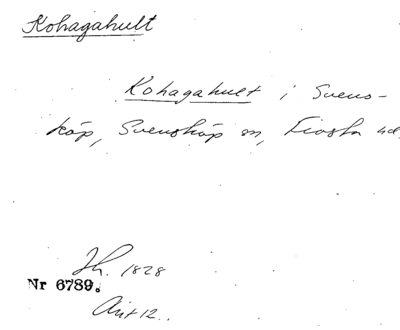 Kohagahult
Kohagahult i Svens-
köp, Svensköp sn, Frosta hd.
Jh. 1828
Nr 6789.
Ant 12.